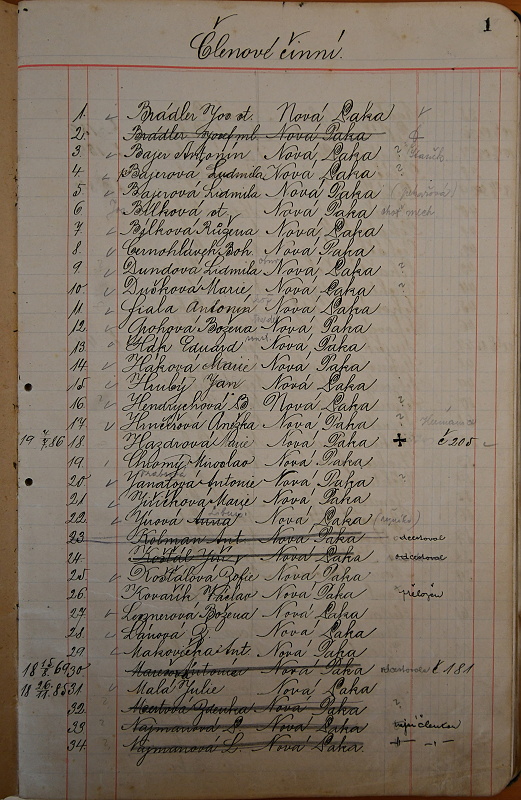 1
Členové činní.
1. Brádler Jos. st. Nová Paka
2. Brádler Josef ml. Nová Paka
3. Bajer Antonín Nová Paka ?
4. Bajerova Ludmila Nová Paka ?
5. Bajerová Lidmila Nová Paka
6 Bílková st. Nová Paka
7 Bílková Růžena Nová Paka
8. Černohlávek Boh. Nová Paka
9. Dundova Lidmila Nová Paka ?
10. Dušková Marie Nová Paka ?
11. Fiala Antonín Nová Paka
12. Božena Nová Paka
13. Hák Eduard Nová Paka
14 Marie Nová Paka
15. Hrubý Jan Nová Paka
16 Hendrychová B Nová Paka
17 Hničkova Anežka Nová Paka ?
19 4/7. 86 18 Hazdrová Marie Nová Paka + č 205
19. Chromý Miroslav Nová Paka
20. Janatová Antonie Nová Paka ?
21. Jiřičková Marie Nová Paka
22. Jírová Anna Nová Paka
23 Kolman Ant Nová Paka odcestoval
24. Košťál Jiří Nová Paka odcestoval
25. Košťálová Žofie Nová Paka
26. Kovařík Václav Nová Paka přeložen
27. Lexnerová Božena Nová Paka
28. Nová Paka
29. Makovička Ant Nová Paka
18 15/8. 69 30. Marešová Antonie Nová Paka odcestovala č 181
18 26/11. 85 31 Malá Julie Nová Paka
32. Mertová Zdenka Nová Paka ?
33 Najmanová Nová Paka
34. Najmanová L. Nová Paka -"- -"-